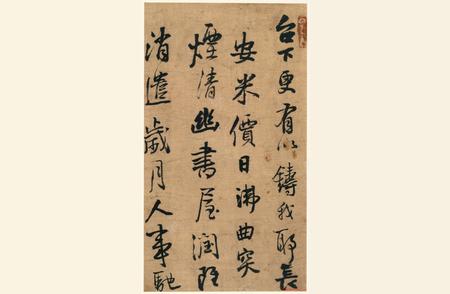 台下更有以鑄我耶長
安米價日沸曲突
煙清幽書屋潤
消遣歲月人事馳